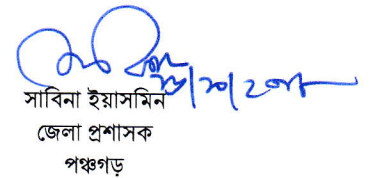 সাবিনা ইয়াসমিন
জেলা প্রশাসক
পঞ্চগড়